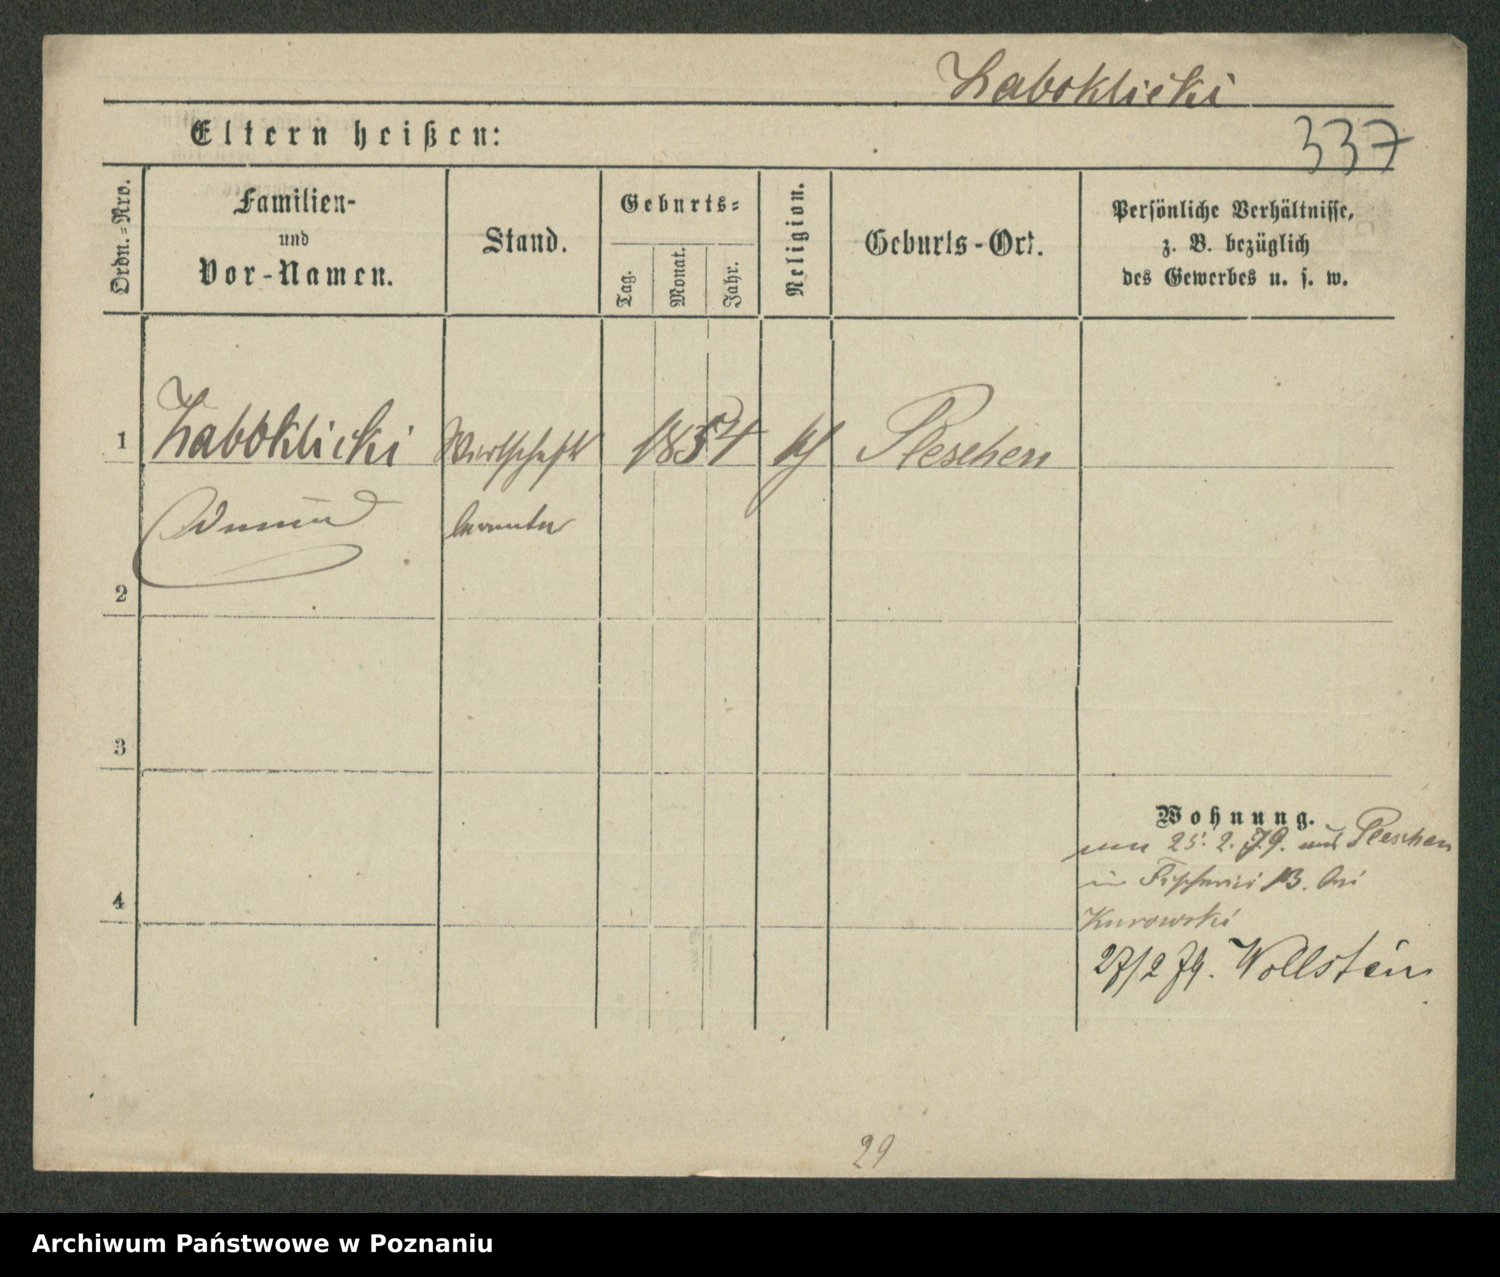 Zaboklicki
337
Eltern heißen:
Ordn.-Nro.
Familien-
und
Vor-Namen.
Stand.
Geburts-
Tag.
Monat.
Jahr.
Religion.
Geburts-Ort.
Persönliche Verhältnisse,
z. B. bezüglich
des Gewerbes u. s. w.
1 Zaboklicki Wirtschafts 1854 Pleschen
Edmund beamter
2
3
4
Wohnung.
25. 2. 79. aus Pleschen
in Fischerei 13. bei
Kurowski
27/2 79. Wollstein
29
Archiwum Państwowe w Poznaniu